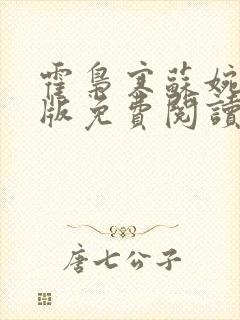 霍梟寒蘇婉
版免費閱讀
唐七公子